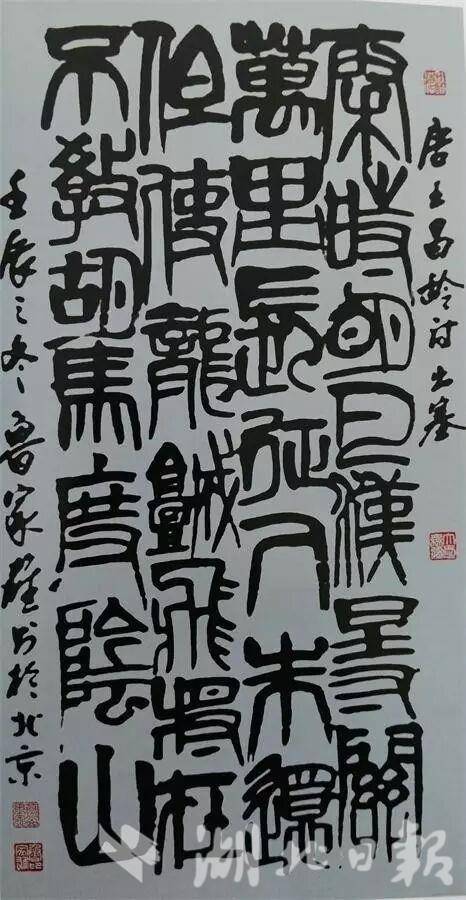 唐王昌龄诗出塞
秦時明月漢時關
萬里長征人未還
但使龍城飛將在
不教胡馬度陰山
壬辰之冬魯家书於北京
湖北日報